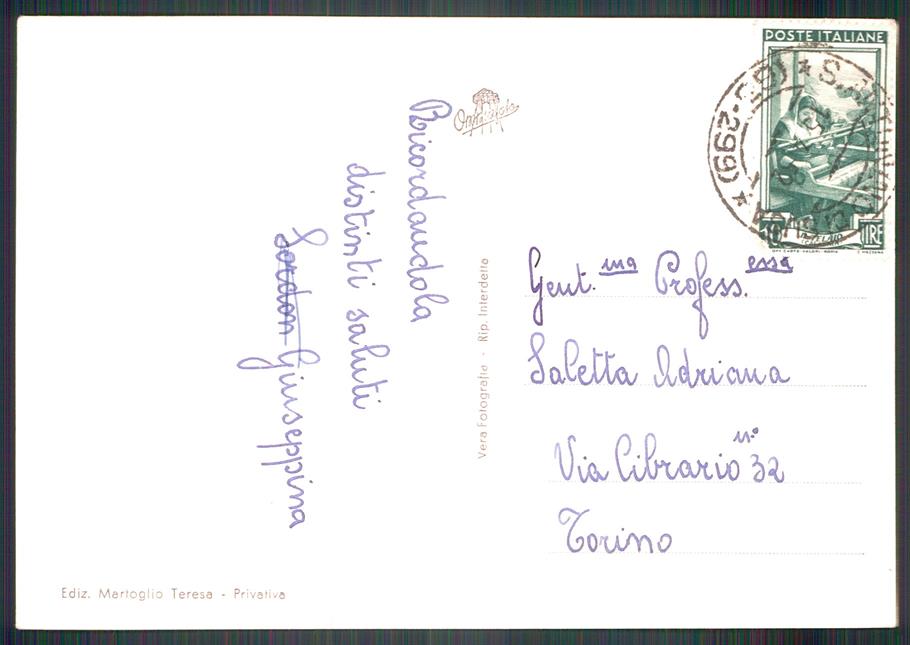 Ricordandola
distinti saluti
Giuseppina
Ediz. Martoglio Teresa - Privativa
Vera Fotografia - Rip. Interdetta
POSTE ITALIANE
LIRE
(5-299)
Gent.ma Profess.essa
Saletta Adriana
Via Cibrario n° 32
Torino